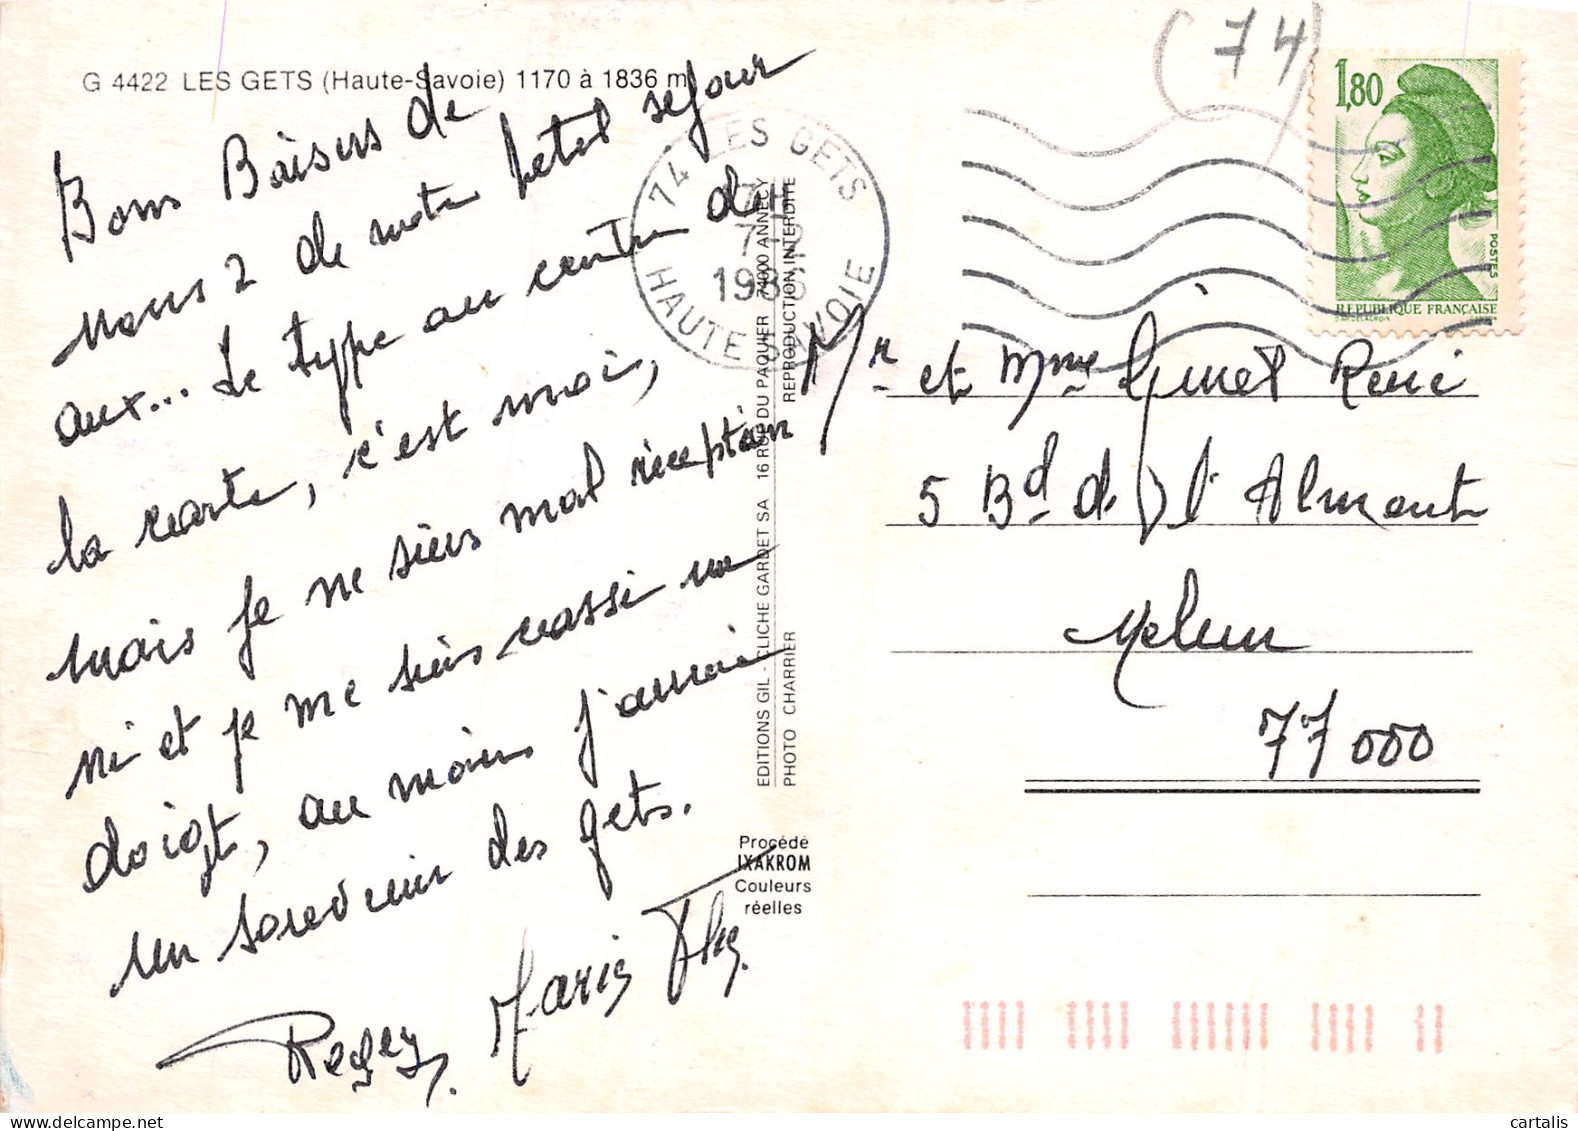 G 4422 LES GETS (Haute-Savoie) 1170 à 1836 m
(74)
1,80
POSTES
REPUBLIQUE FRANÇAISE
74 LES GETS
7H
7-2
1986
HAUTE SAVOIE
Bons Baisers de
nous 2 de notre petit séjour
aux... Le type au centre de
la carte, c'est moi,
mais je ne suis mal réception
né et je me suis cassé un
doigt, au moins j'aurai
un souvenir des gets.
Marie Fly.
EDITIONS GIL - CLICHE GARDET SA 16 RUE DU PAQUIER 74000 ANNECY
PHOTO CHARRIER REPRODUCTION INTERDITE
Procédé
IXAKROM
Couleurs
réelles
Mr et Mme Ginet René
5 Bd de l'Almont
Melun
77000